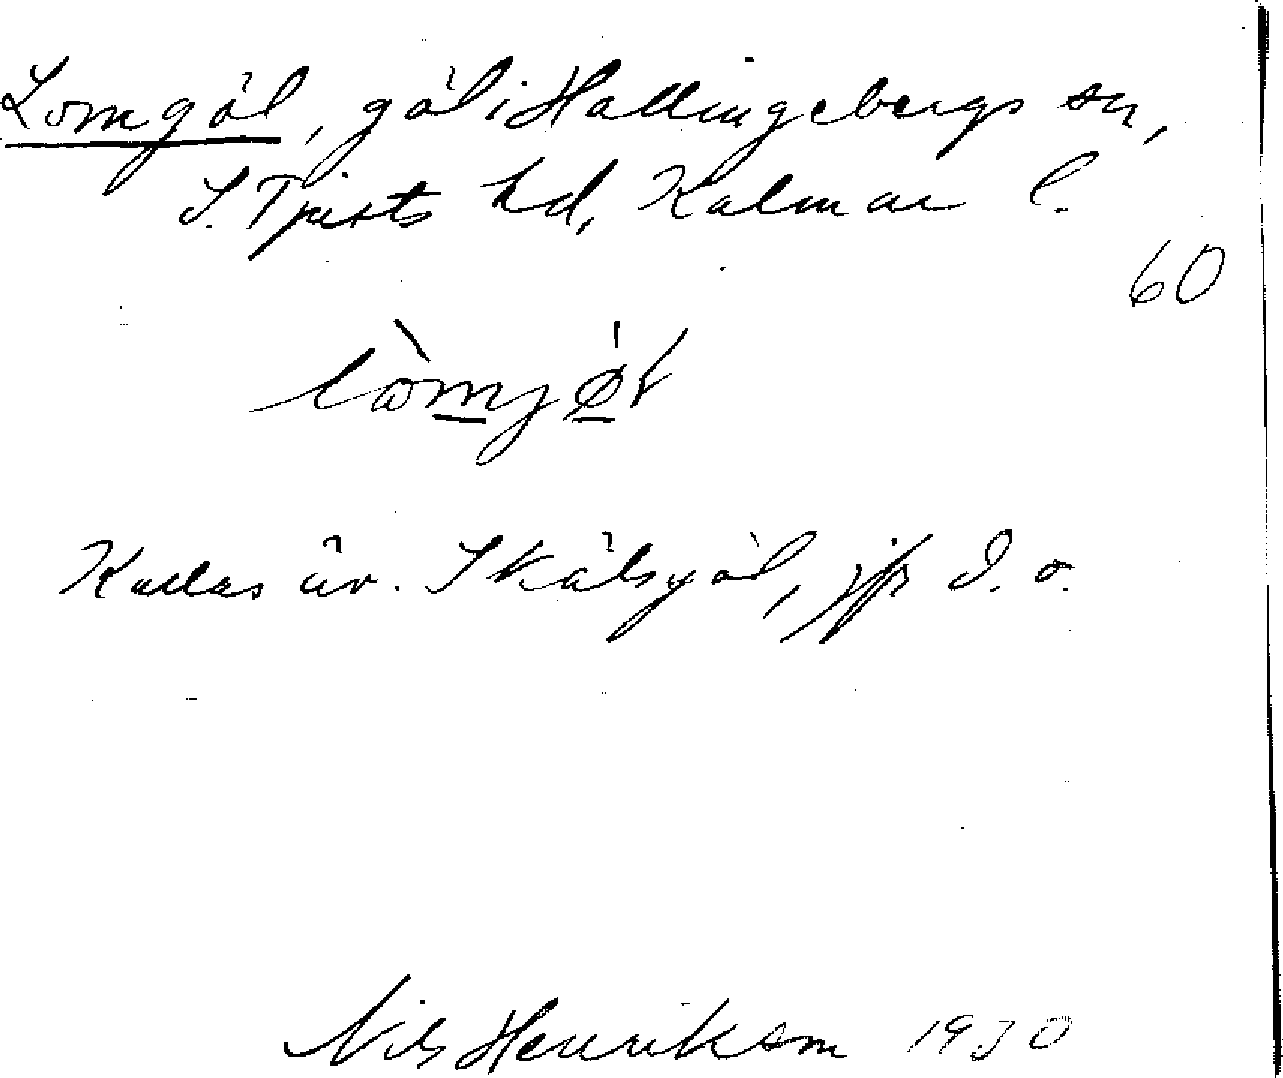 Lomgöl, göl i Hallingebergs sn,
S. Tjusts hd, Kalmar l.
60
Kallas äv. Skälsgöl, jfr d. o.
Nils Henrikson 1930